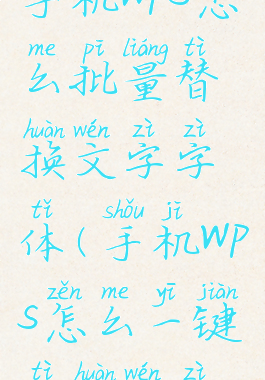 手机WPS怎
me pī liáng tì
么批量替
huàn wén zì zì
换文字字
tǐ shǒu jī
体(手机WP
zěn me yī jiàn
S怎么一键
tì huàn wén zì